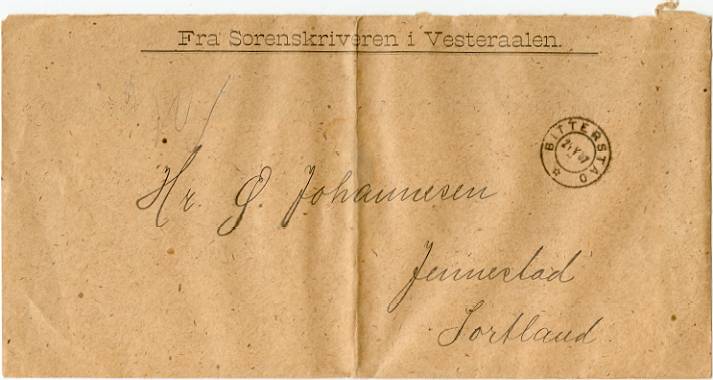 Fra Sorenskriveren i Vesteraalen.
BITTERSTAD
Hr. G. Johannesen
Jennestad
Sortland